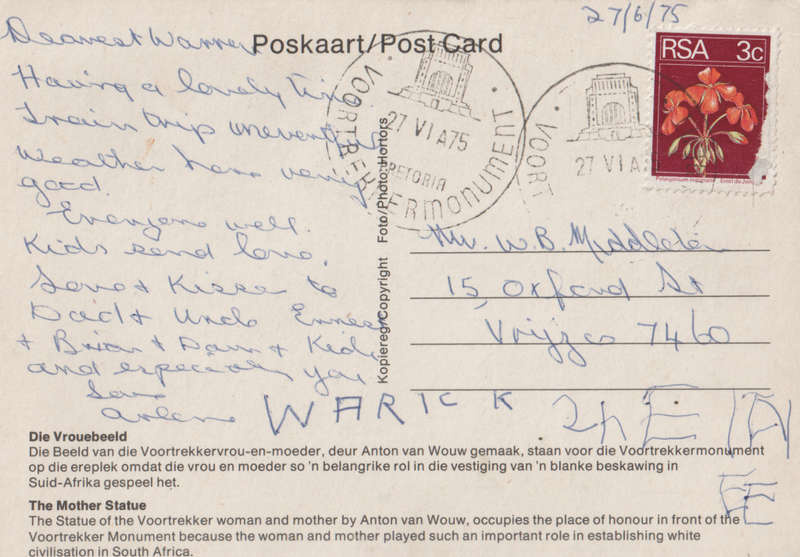 27/6/75
Poskaart/Post Card
RSA 3c
VOORTREKKERMONUMENT
27 VI A75
PRETORIA
VOORT
27 VI A
Dearest Warren
Having a lovely
Train trip
Weather here very
good.
Everyone well.
Kids send love.
Love & Kisses to
Dad & Uncle
& Brian & Dawn & Kids
and especially you
Love
Arlene
Kopiereg/Copyright Foto/Photo: Hortors
Mr. W.B. Middleton
15, Oxford St
7460
WARICK
Die Vrouebeeld
Die Beeld van die Voortrekkervrou-en-moeder, deur Anton van Wouw gemaak, staan voor die Voortrekkermonument
op die ereplek omdat die vrou en moeder so 'n belangrike rol in die vestiging van 'n blanke beskawing in
Suid-Afrika gespeel het.
The Mother Statue
The Statue of the Voortrekker woman and mother by Anton van Wouw, occupies the place of honour in front of the
Voortrekker Monument because the woman and mother played such an important role in establishing white
civilisation in South Africa.